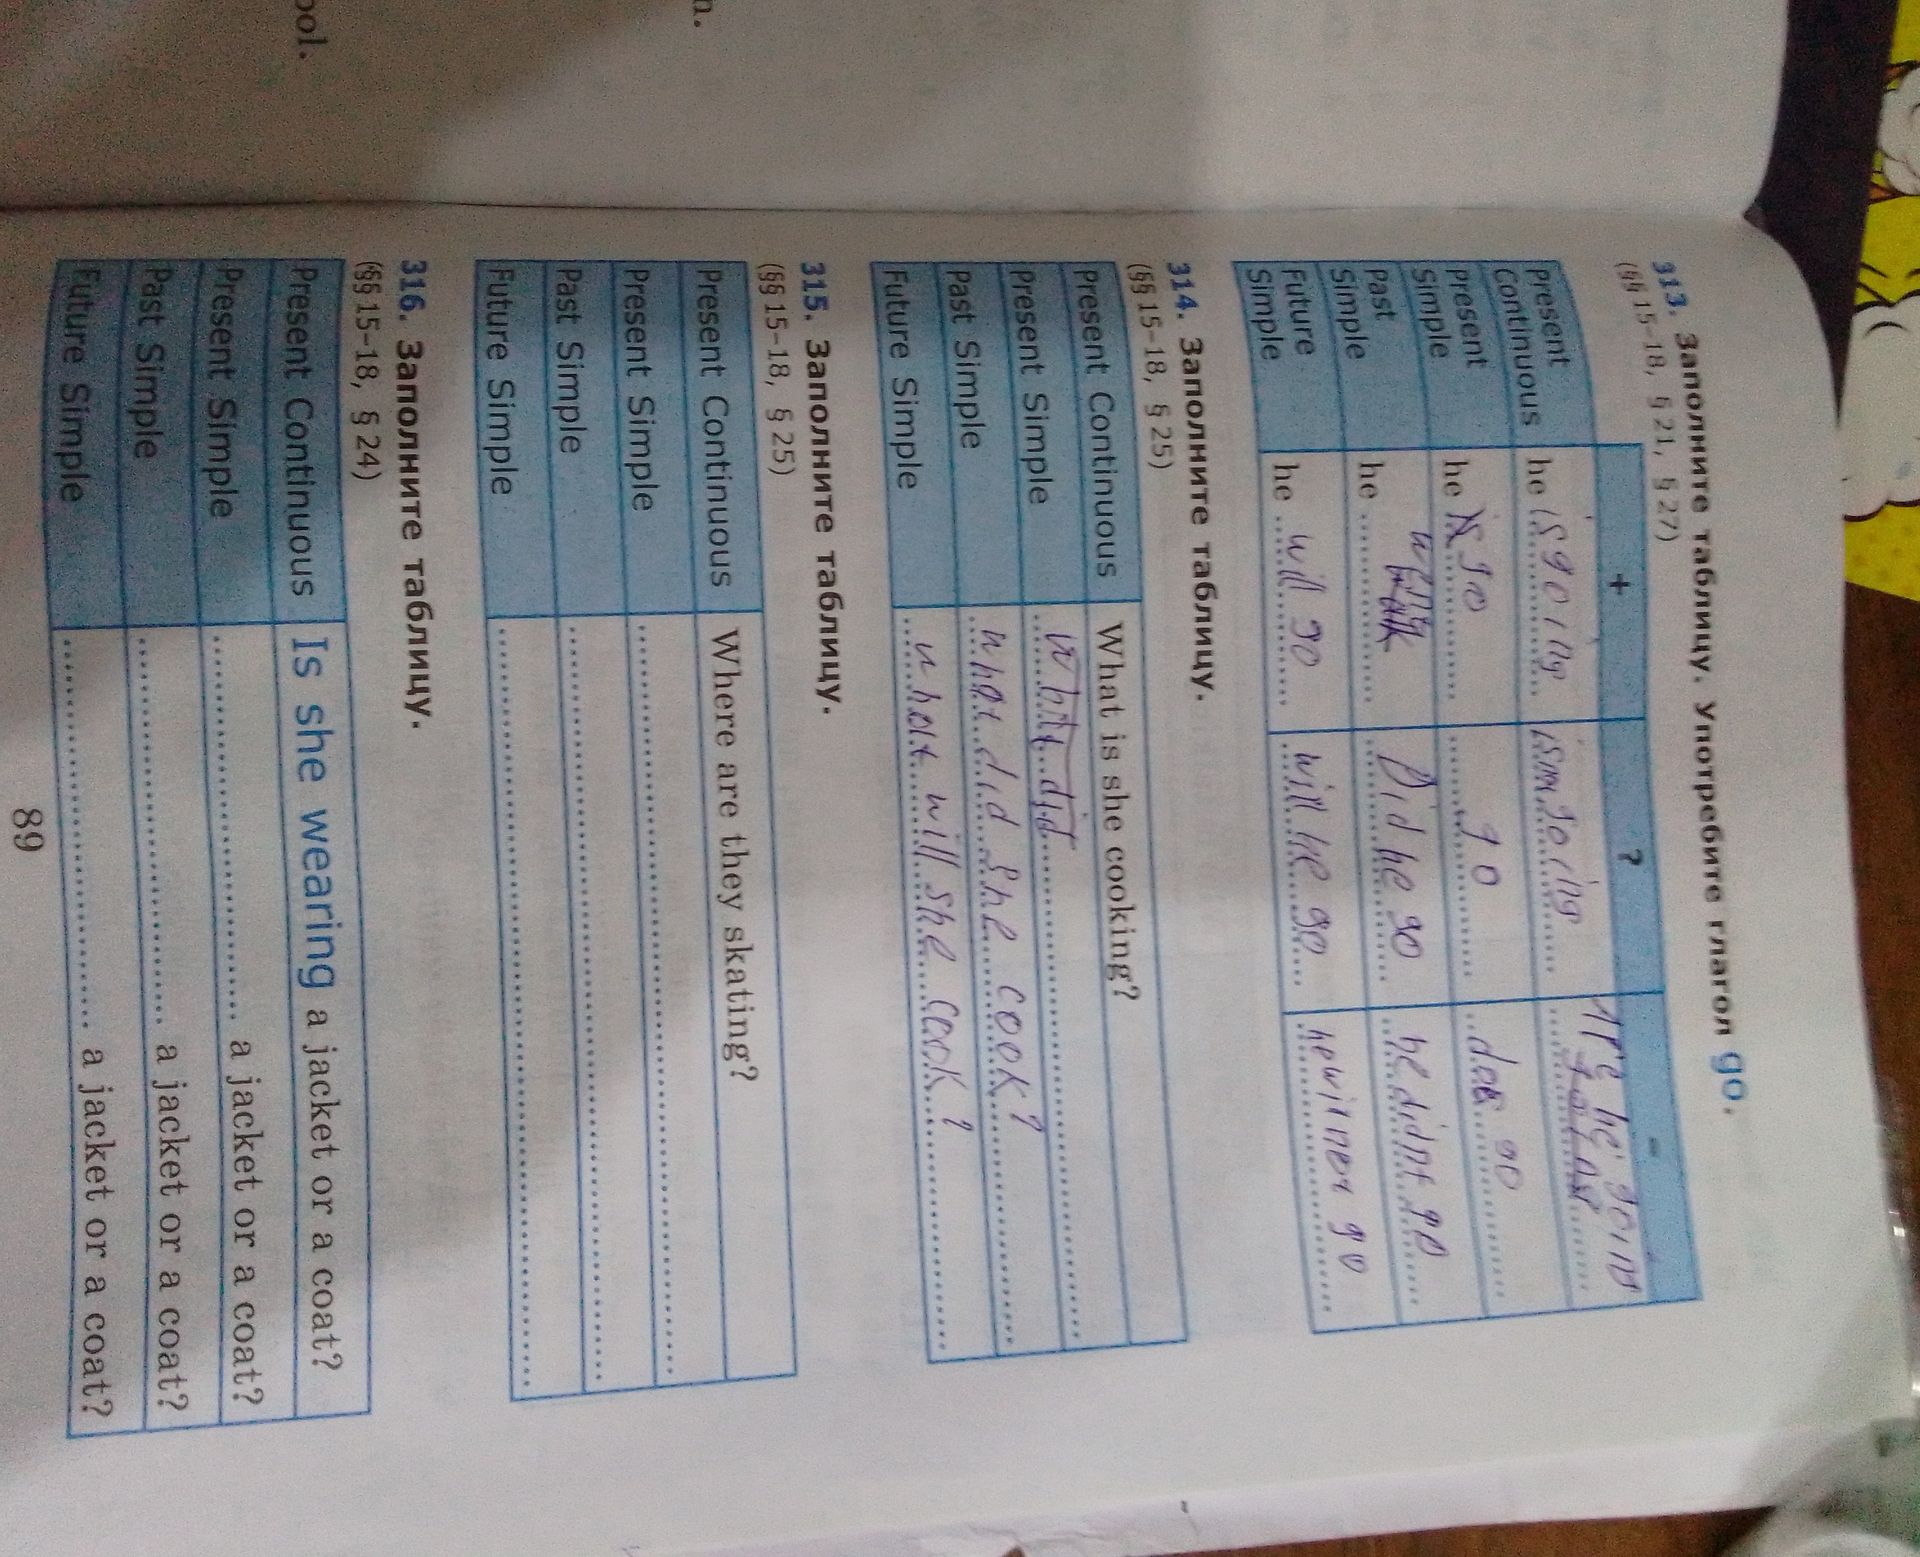 ool.
n.
313. Заполните таблицу. Употребите глагол go.
(§§ 15-18, § 21, § 27)
+ ? -
Present Continuous he is going
Are he going
Present Simple he is go go does go
Past Simple he Did he go he didnt go
Future Simple he will go will he go he will not go
314. Заполните таблицу.
(§§ 15-18, § 25)
Present Continuous What is she cooking?
Present Simple did
Past Simple what did she cook?
Future Simple what will she cook?
315. Заполните таблицу.
(§§ 15-18, § 25)
Present Continuous Where are they skating?
Present Simple
Past Simple
Future Simple
316. Заполните таблицу.
(§§ 15-18, § 24)
Present Continuous Is she wearing a jacket or a coat?
Present Simple a jacket or a coat?
Past Simple a jacket or a coat?
Future Simple a jacket or a coat?
89